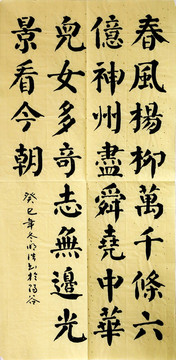 春風楊柳萬千條六
億神州盡舜堯中華
兒女多奇志無邊光
景看今朝
癸巳年冬